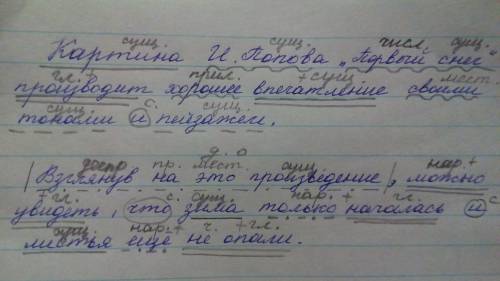 сущ. сущ. числ. сущ.
Картина И. Попова „Первый снег"
гл. прил. + сущ. мест.
производит хорошее впечатление своими
сущ. с. сущ.
тонами и пейзажем.
д. о
деепр. пр. мест. сущ. нар. +
|Взглянув на это произведение|, можно
гл. с. сущ. нар. + гл. с
увидеть, что зима только началась и
сущ. нар. + ч. + гл.
листья еще не опали.